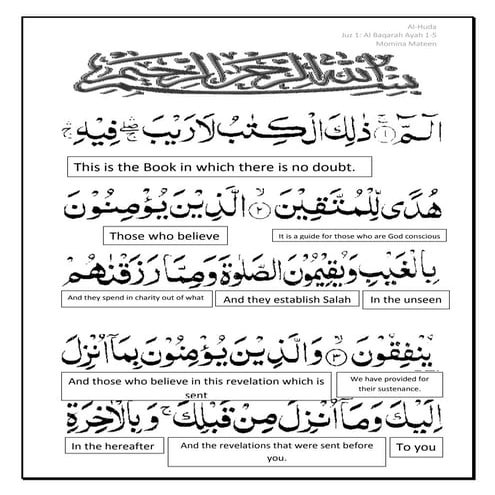 Al-Huda
Juz 1: Al Baqarah Ayah 1-5
Momina Mateen
بِسْمِ اللهِ الرَّحْمٰنِ الرَّحِيْمِ
الٓمّٓ ۚ ﴿١﴾ ذٰلِكَ الْكِتٰبُ لَا رَيْبَ ۛ فِيْهِ ۛ
This is the Book in which there is no doubt.
هُدًى لِّلْمُتَّقِيْنَ ﴿٢﴾ الَّذِيْنَ يُؤْمِنُوْنَ
It is a guide for those who are God conscious
Those who believe
بِالْغَيْبِ وَيُقِيْمُوْنَ الصَّلٰوةَ وَمِمَّا رَزَقْنٰهُمْ
In the unseen
And they establish Salah
And they spend in charity out of what
يُنْفِقُوْنَ ﴿٣﴾ وَالَّذِيْنَ يُؤْمِنُوْنَ بِمَآ اُنْزِلَ
We have provided for
their sustenance.
And those who believe in this revelation which is
sent
اِلَيْكَ وَمَآ اُنْزِلَ مِنْ قَبْلِكَ ۚ وَبِالْاٰخِرَةِ
To you
And the revelations that were sent before
you.
In the hereafter